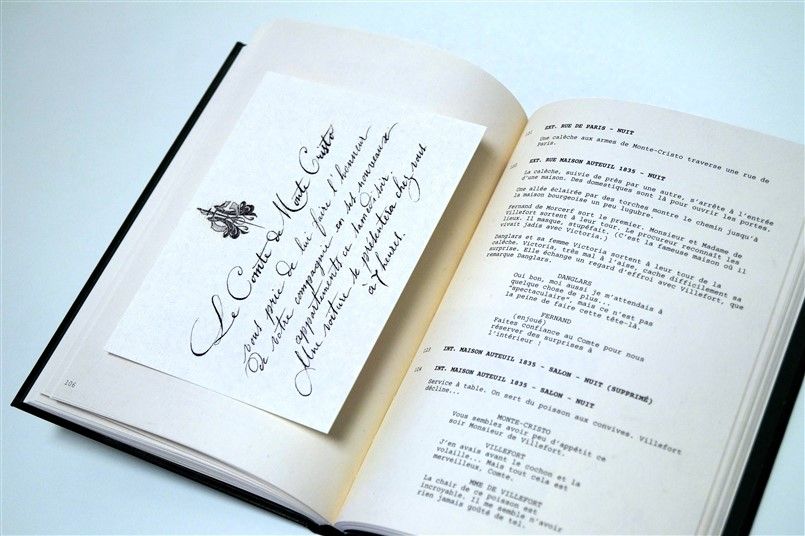 Le Comte de Monte Cristo
vous prie de lui faire l'honneur
de votre compagnie en ses nouveaux
appartements ce samedi soir.
Une voiture se présentera chez vous
à 7 heures.
106
121 EXT. RUE DE PARIS - NUIT
Une calèche aux armes de Monte-Cristo traverse une rue de
Paris.
EXT. RUE MAISON AUTEUIL 1835 - NUIT
La calèche, suivie de près par une autre, s'arrête à l'entrée
d'une maison. Des domestiques sont là pour ouvrir les portes.
Une allée éclairée par des torches montre le chemin jusqu'à
la maison bourgeoise un peu lugubre.
Fernand de Morcerf sort le premier. Monsieur et Madame de
Villefort sortent à leur tour. Le procureur reconnaît les
lieux. Il masque, stupéfait. (C'est la fameuse maison où il
vivait jadis avec Victoria.)
Danglars et sa femme Victoria sortent à leur tour de la
calèche. Victoria, très mal à l'aise, cache difficilement sa
surprise. Elle échange un regard d'effroi avec Villefort, que
remarque Danglars.
DANGLARS
Oui bon, moi aussi je m'attendais à
quelque chose de plus...
"spectaculaire", mais ce n'est pas
la peine de faire cette tête-là.
FERNAND
(enjoué)
Faites confiance au Comte pour nous
réserver des surprises à
l'intérieur !
123 INT. MAISON AUTEUIL 1835 - SALON - NUIT (SUPPRIMÉ)
124 INT. MAISON AUTEUIL 1835 - SALON - NUIT
Service à table. On sert du poisson aux convives. Villefort
décline...
MONTE-CRISTO
Vous semblez avoir peu d'appétit ce
soir Monsieur de Villefort.
VILLEFORT
J'en avais avant le cochon et la
volaille... Mais tout cela est
merveilleux, Comte.
MME DE VILLEFORT
La chair de ce poisson est
incroyable. Il me semble n'avoir
rien jamais goûté de tel.